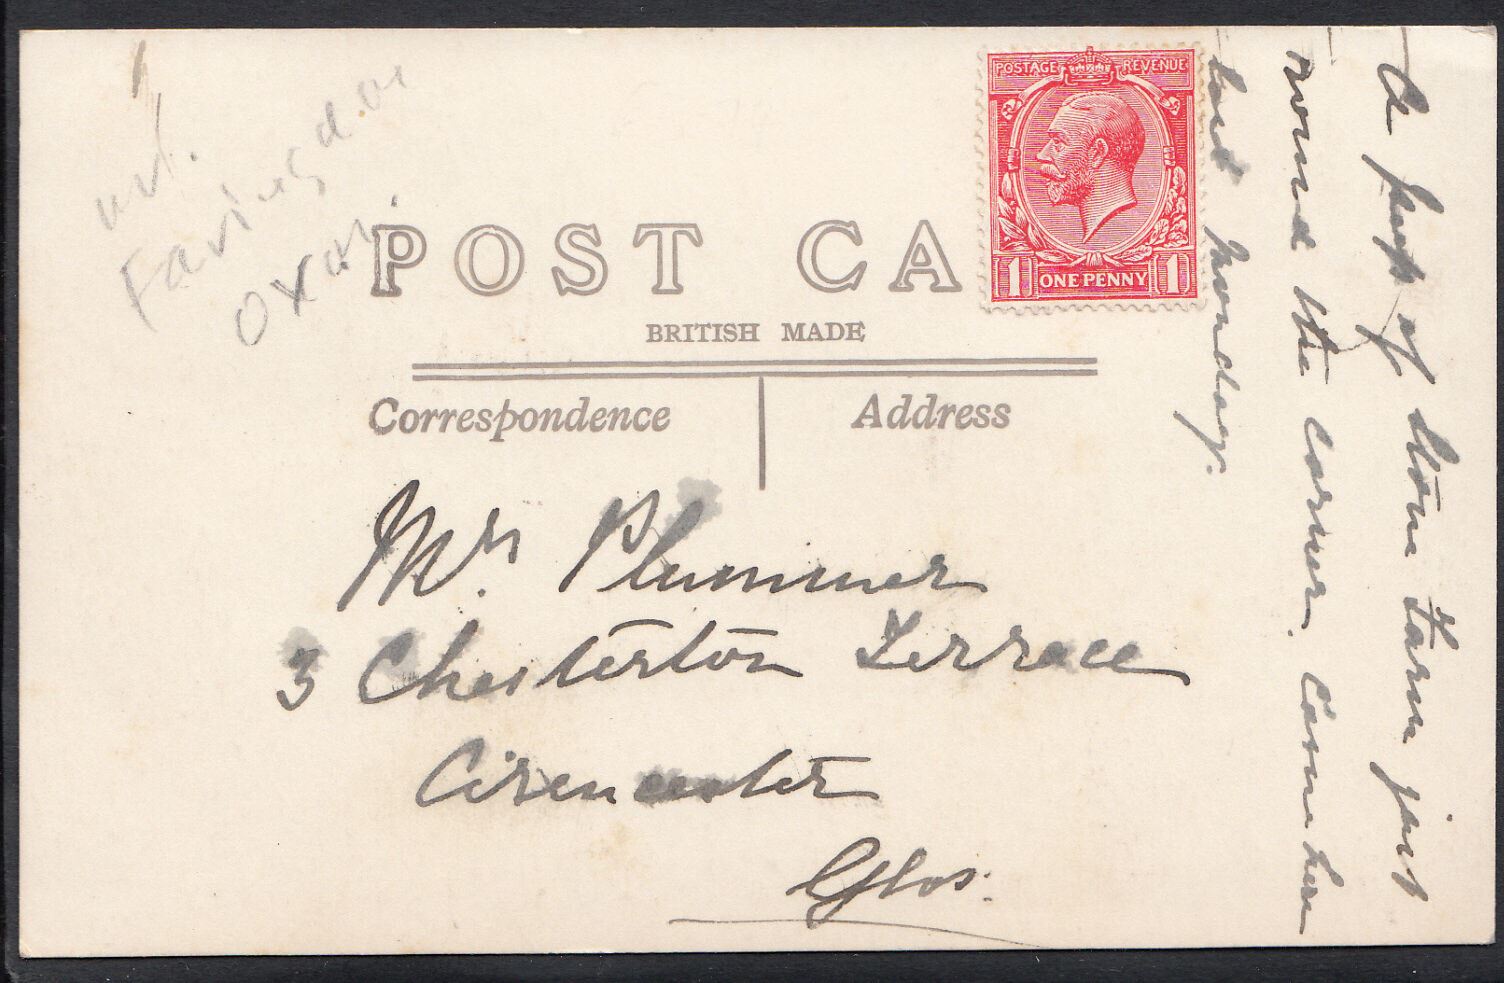 nr.
Faringdon
Oxon.
POST CA
BRITISH MADE
Correspondence
Address
POSTAGE REVENUE
1 ONE PENNY 1
Mr. Plummer
3 Chesterton Terrace
Cirencester
Glos.
A peep of Stone Farm just
round the corner. Came here
last Monday.